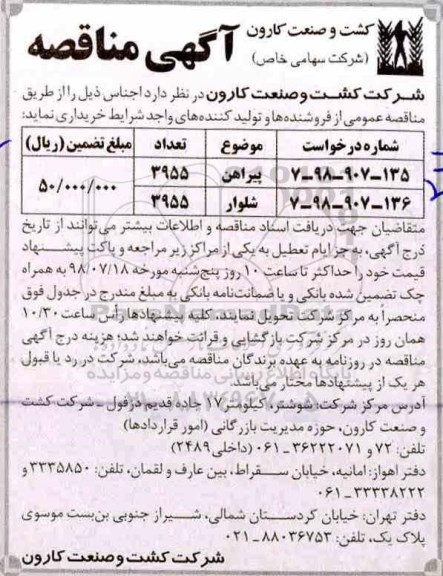 کشت و صنعت کارون
(شرکت سهامی خاص)
آگهی مناقصه
شرکت کشت و صنعت کارون در نظر دارد اجناس ذیل را از طریق
مناقصه عمومی از فروشنده‌ها و تولید کننده‌های واجد شرایط خریداری نماید:
شماره درخواست موضوع تعداد مبلغ تضمین (ریال)
۷-۹۸-۹۰۷-۱۳۵ پیراهن ۳۹۵۵ ۵۰/۰۰۰/۰۰۰
۷-۹۸-۹۰۷-۱۳۶ شلوار ۳۹۵۵
متقاضیان جهت دریافت اسناد مناقصه و اطلاعات بیشتر می‌توانند از تاریخ
درج آگهی، به جز ایام تعطیل به یکی از مراکز زیر مراجعه و پاکت پیشنهاد
قیمت خود را حداکثر تا ساعت ۱۰ روز پنج‌شنبه مورخه ۹۸/۰۷/۱۸ به همراه
چک تضمین شده بانکی و یا ضمانت‌نامه بانکی به مبلغ مندرج در جدول فوق
منحصراً به مرکز شرکت تحویل نمایند. کلیه پیشنهادها رأس ساعت ۱۰/۳۰
همان روز در مرکز شرکت بازگشایی و قرائت خواهند شد؛ هزینه درج آگهی
مناقصه در روزنامه به عهده برندگان مناقصه می‌باشد، شرکت در رد یا قبول
هر یک از پیشنهادها مختار می‌باشد.
آدرس مرکز شرکت: شوشتر، کیلومتر ۱۷ جاده قدیم دزفول ـ شرکت کشت
و صنعت کارون، حوزه مدیریت بازرگانی (امور قراردادها)
تلفن: ۷۲ و ۳۶۲۲۲۰۷۱-۰۶۱ (داخلی ۲۴۸۹)
دفتر اهواز: امانیه، خیابان سقراط، بین عارف و لقمان، تلفن: ۳۳۳۵۸۵۰ و
۳۳۳۳۸۲۲۲-۰۶۱
دفتر تهران: خیابان کردستان شمالی، شیراز جنوبی بن‌بست موسوی
پلاک یک، تلفن: ۸۸۰۳۶۷۵۳-۰۲۱
شرکت کشت و صنعت کارون